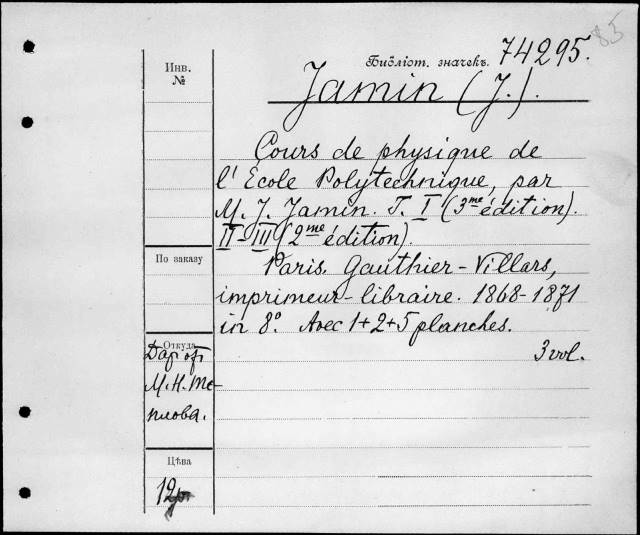 85
Библіот. значекъ. 74295.
Инв.
№
Jamin (J.).
Cours de physique de
l'École Polytechnique, par
M. J. Jamin. T. I (3me édition).
II–III (2me édition).
По заказу
Paris. Gauthier-Villars,
imprimeur-libraire. 1868-1871
in 8°. Avec 1+2+5 planches.
3 vol.
Откуда
Даръ отъ
М. Н. Те-
плова.
Цѣва
12р.